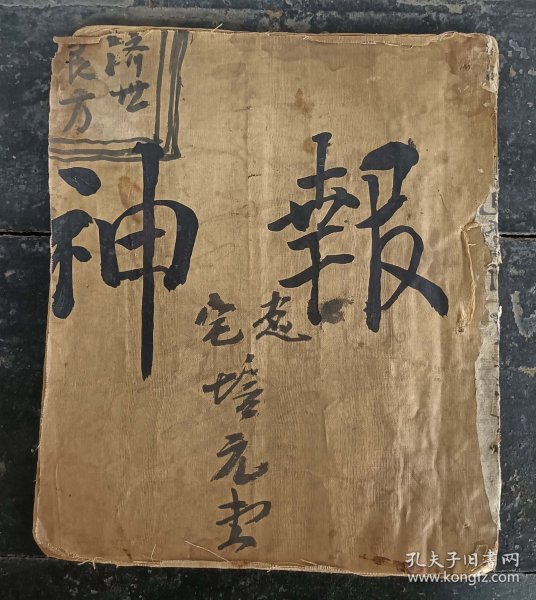 济世
良方
報神
宅
培元堂
孔夫子旧书网
www.kongfz.com